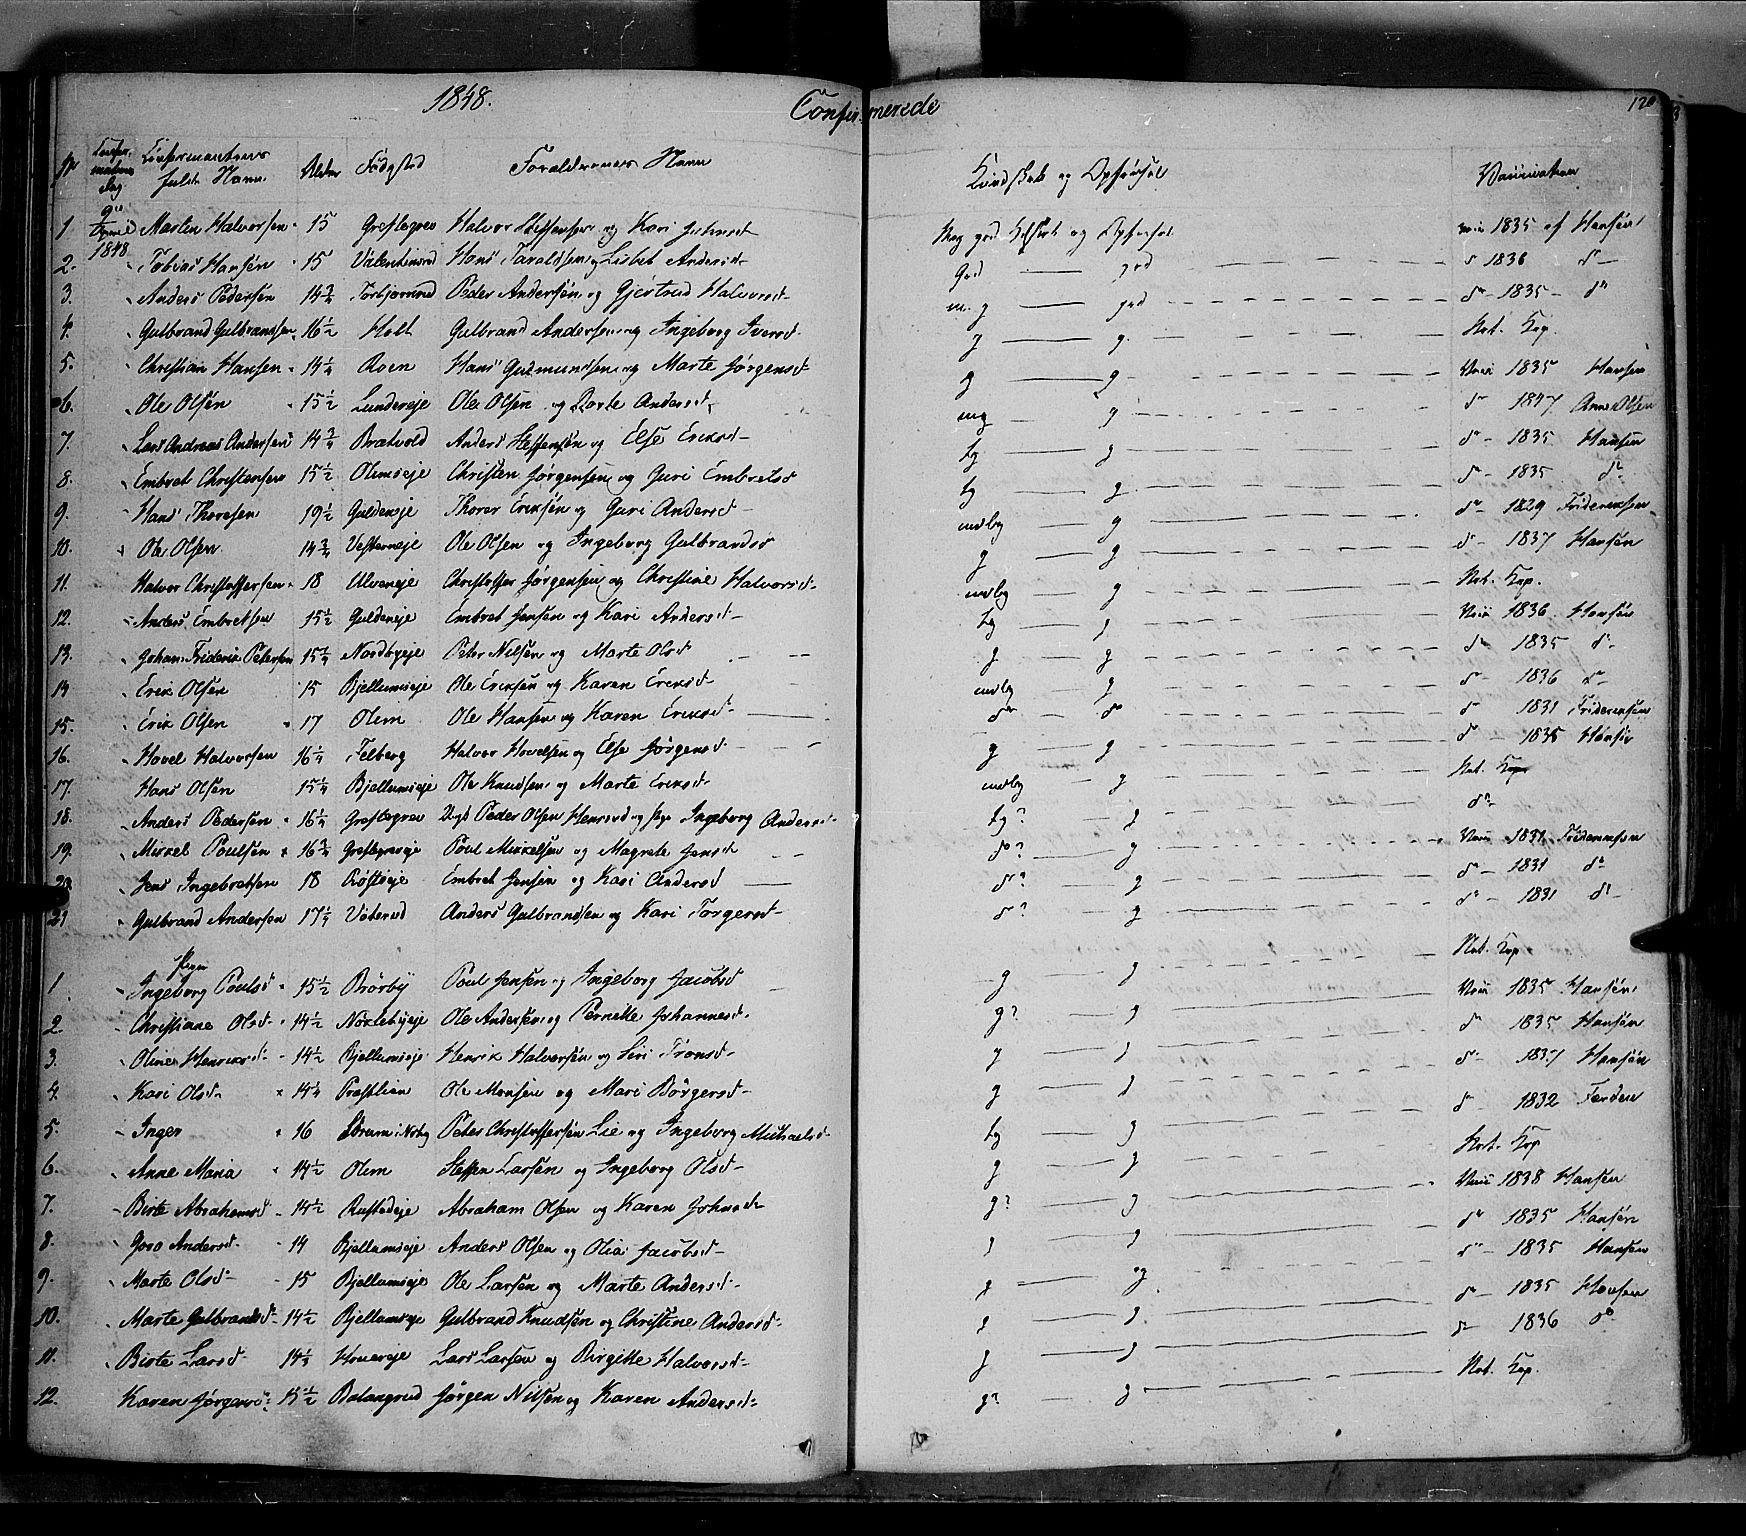 1848. Confirmerede 120
N Confirmations Dag Confirmantens fulde Navn Alder Födested Forældrenes Navn Kundskab og Opförsel Vaccination
1 9de April 1848 Martin Halvorsen 15 Greftegrev Halvor Steffensen og Kari Johnsd Meg god Indsigt og Opförsel vac 1835 af Hansen
2. Tobias Hansen 15 Valentinrud Hans Taraldsen og Lisbet Andersd God god d 1836 do
3. Anders Pedersen 14 3/4 Torbjörnrud Peder Andersen og Gjertrud Halvorsd m. g god do 1835 do
4. Gulbrand Gulbrandsen 16 1/2 Holt Gulbrand Andersen og Ingeborg Iversd g g. Nat. Kop.
5. Christian Hansen 14 1/4 Roen Hans Gudmundsen og Marte Jörgensd g g Vac 1835 Hansen
6. Ole Olsen 15 1/2 Lundereje Ole Olsen og Dorte Andersd mg g do 1837 Anne Olsen
7. Lars Andreas Andersen 14 3/4 Bratvold Anders Steffensen og Else Eriksd tg g do 1835 Hansen
8. Embret Christensen 15 1/2 Olimseje Christen Jörgensen og Guri Embretsd tg g do 1835 do
9. Hans Thoresen 19 1/2 Guldeneje Thorer Eriksen og Guri Andersd mdlg g do 1829 Fridericksen
10. Ole Olsen 14 3/4 Vesterneje Ole Olsen og Ingeborg Gulbrandsd g g do 1837 Hansen
11. Halvor Christoffersen 18 Ulveneje Christoffer Jörgensen og Christine Halvorsd mdlg g Nat. Kop.
12. Anders Embretsen 15 1/2 Guldeneje Embret Jensen og Kari Andersd tg g Vac 1836 Hansen
13. Johan Friderik Petersen 15 1/4 Nordbyeje Peter Nilsen og Marte Olsd g g do 1835 do
14 Erik Olsen 15 Bjellumseje Ole Eriksen og Karen Eriksd mdlg g do 1836 do
15. Erik Olsen 17 Olim Ole Hansen og Karen Eriksd do do do 1831 Fridericksen
16. Hovel Halvorsen 16 1/4 Felberg Halvor Hovelsen og Else Jörgensd g g do 1835 Hansen
17. Hans Olsen 15 1/4 Bjellumseje Ole Knudsen og Marte Eriksd mdlg g Nat. Kop
18. Anders Pedersen 16 1/4 Greftegrev Peder Olsen og Ingeborg Andersd tg? g do
19. Mikkel Poulsen 16 3/4 Greftegreveje Poul Mikkelsen og Magrete Jensd do? g Vac 1831 Fridericksen
20. Jens Ingebretsen 18 Röstseje Embret Jensen og Kari Andersd do? g do 1831 do
21 Gulbrand Andersen 17 1/4 Vöterud Anders Gulbrandsen og Kari Torgersd do? g do 1831 do
Nat. Kop
Piger
1 Ingeborg Poulsd 15 1/2 Brörby Poul Jensen og Ingeborg Jacobsd g g Vac 1835 Hansen
2 Christiane Olsd 14 1/2 Nöklebyeje Ole Andersen og Pernille Johannesd g? g do 1835 Hansen
3. Oline Henriksd 14 1/2 Bjellumseje Henrik Halvorsen og Siri Tronsd g g do 1837 Hansen
4. Kari Olsd 14 1/4 Præstlien Ole Monsen og Mari Börgersd g g do 1832 Færden
5. Inger 16 Peter Christoffersen Lie og Ingeborg Michaelsd tg g Nat. Kop
6. Anne Maria 14 1/2 Olim Steffen Larsen og Ingeborg Olsd g g Vac 1838 Hansen
7. Birte Abrahamsd 14 1/2 Rustadeje Abraham Olsen og Karen Johnsd g? g do 1835 Hansen
8. Goro Andersd 14 Bjellumseje Anders Olsen og Olia Jacobsd g g do 1835 Hansen
9. Marte Olsd 15 Bjellumseje Ole Larsen og Marte Andersd g g do 1835 Hansen
10. Marte Gulbrandsd 14 1/2 Bjellumseje Gulbrand Knudsen og Christine Andersd g g do 1836 do
11. Birte Larsd 14 1/4 Hovereje Lars Larsen og Birgitte Halvorsd g g Nat. Kop.
12. Karen Jörgensd 15 1/2 Balangrud Jörgen Nilsen og Karen Andersd g? g